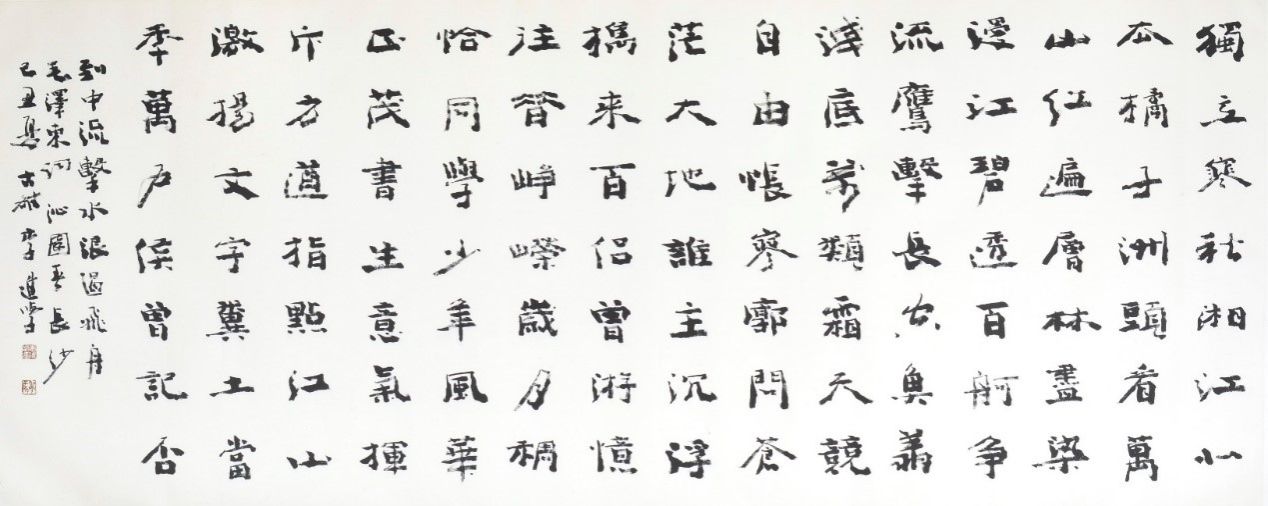 獨立寒秋湘江北
去橘子洲頭看萬
山紅遍層林盡染
漫江碧透百舸争
流鷹擊長空魚翔
淺底萬類霜天競
自由悵寥廓問蒼
茫大地誰主沉浮
攜来百侣曾游憶
往昔崢嶸歲月稠
恰同學少年風華
正茂書生意氣揮
斥方遒指點江山
激揚文字糞土當
年萬户侯曾記否
到中流擊水浪遏飛舟
毛澤東詞沁園春長沙
己丑夏古城李進學